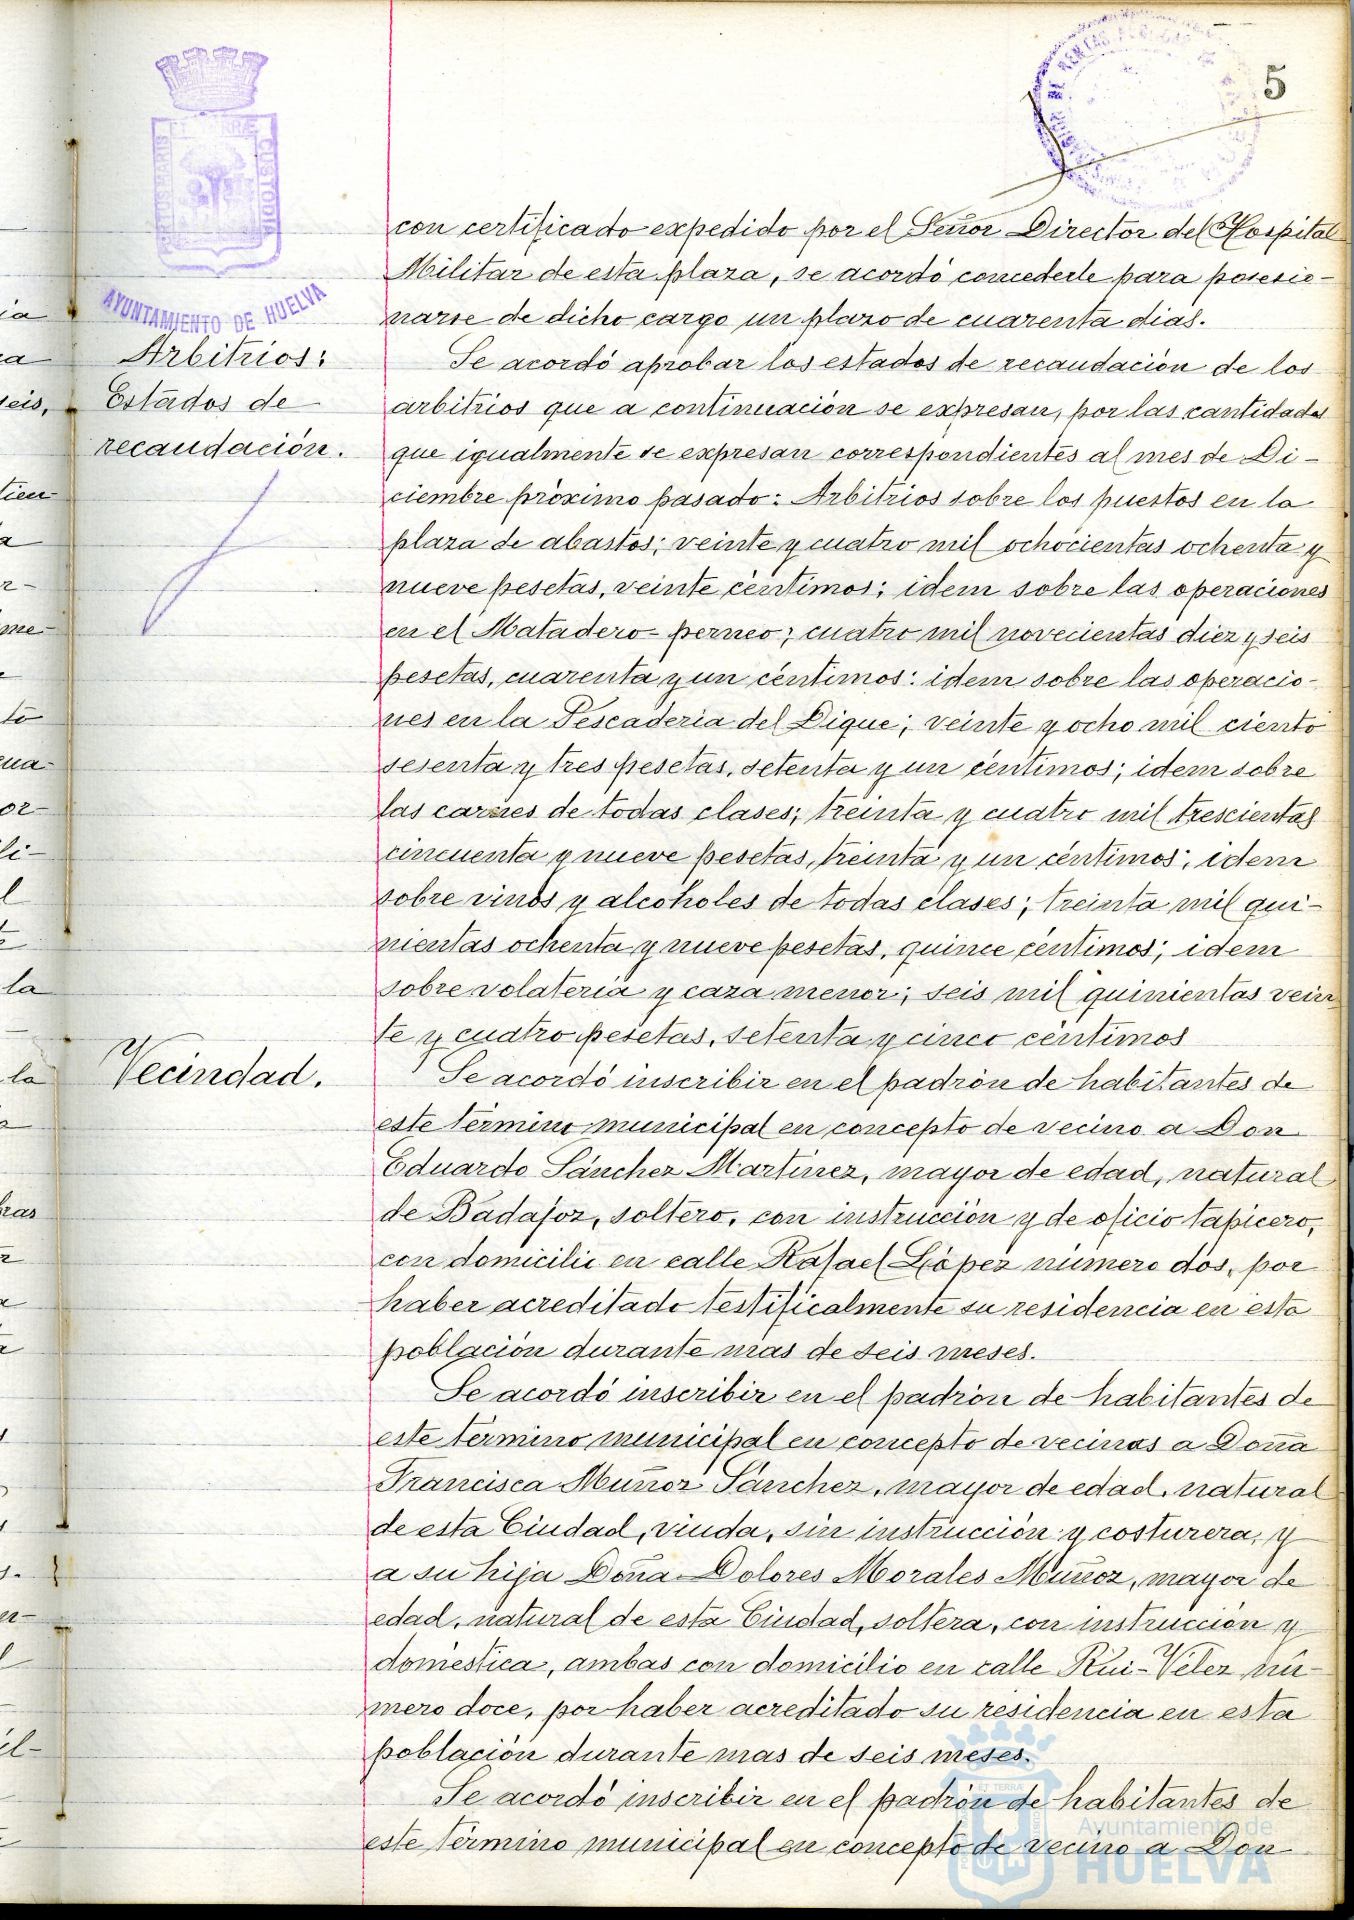 5
PORTUS MARIS
ET TERRÆ
CUSTODIA
AYUNTAMIENTO DE HUELVA
con certificado expedido por el Señor Director del Hospital
Militar de esta plaza, se acordó concederle para posesio-
narse de dicho cargo un plazo de cuarenta dias.
Arbitrios:
Estados de
recaudación.
Se acordó aprobar los estados de recaudación de los
arbitrios que a continuación se expresan, por las cantidades
que igualmente se expresan correspondientes al mes de Di-
ciembre próximo pasado: Arbitrios sobre los puestos en la
plaza de abastos; veinte y cuatro mil ochocientas ochenta y
nueve pesetas, veinte céntimos; idem sobre las operaciones
en el Matadero-perneo; cuatro mil novecientas diez y seis
pesetas, cuarenta y un céntimos: idem sobre las operacio-
nes en la Pescaderia del Dique; veinte y ocho mil ciento
sesenta y tres pesetas, setenta y un céntimos; idem sobre
las carnes de todas clases; treinta y cuatro mil trescientas
cincuenta y nueve pesetas, treinta y un céntimos; idem
sobre vinos y alcoholes de todas clases; treinta mil qui-
nientas ochenta y nueve pesetas, quince céntimos; idem
sobre volateria y caza menor; seis mil quinientas vein
te y cuatro pesetas, setenta y cinco céntimos
Vecindad.
Se acordó inscribir en el padrón de habitantes de
este término municipal en concepto de vecino a Don
Eduardo Sánchez Martinez, mayor de edad, natural
de Badajoz, soltero, con instrucción y de oficio tapicero,
con domicilio en calle Rafael López número dos, por
haber acreditado testificalmente su residencia en esta
población durante mas de seis meses.
Se acordó inscribir en el padrón de habitantes de
este término municipal en concepto de vecinas a Doña
Francisca Muñoz Sánchez, mayor de edad, natural
de esta Ciudad, viuda, sin instrucción y costurera, y
a su hija Doña Dolores Morales Muñoz, mayor de
edad, natural de esta Ciudad, soltera, con instrucción y
doméstica, ambas con domicilio en calle Rui-Vélez nú-
mero doce, por haber acreditado su residencia en esta
población durante mas de seis meses.
Se acordó inscribir en el padrón de habitantes de
este término municipal en concepto de vecino a Don
Ayuntamiento de
HUELVA